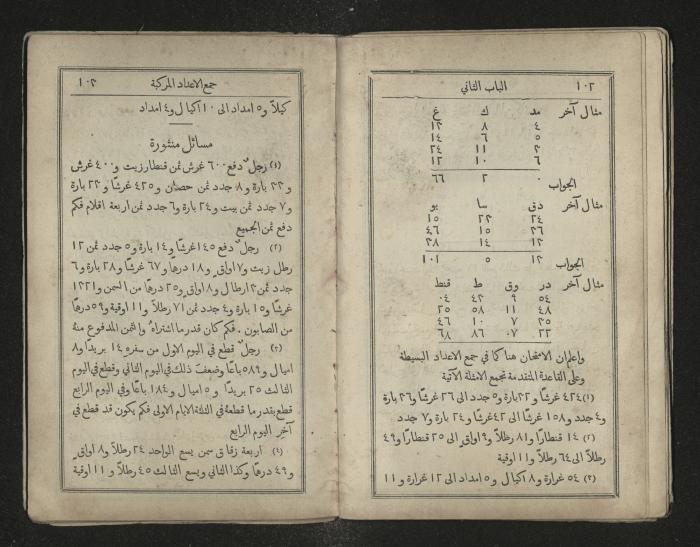 ١٠٢ الباب الثاني
مثال آخر مد ك غ
٤ ٨ ١٢
٥ ٦ ١٤
٣ ١١ ٢٤
٦ ١٠ ١٢
الجواب ٠ ٢ ٦٦
مثال آخر دق سا يو
٢٤ ٢٣ ١٥
٣٦ ١٥ ٤٦
١٢ ١٤ ٣٨
الجواب ١٢ ٥ ١٠١
مثال آخر در وق ط قنط
٥٤ ٩ ٤٣ ٠٤
٤٨ ١١ ٥٨ ٢٥
٣٥ ٧ ١٠ ٤٦
٢٢ ٠٧ ٨٦ ٦٨
واعلم ان الامتحان هنا كما في جمع الاعداد البسيطة
وعلى القاعدة المتقدمة تجمع الامثلة الآتية
(١) ٤٢٤ غرشًا و٢٢ بارة و٥ جدد الى ٢٦ غرشًا و٣٦ بارة
و٤ جدد و١٥٨ غرشًا الى ٤٢ غرشًا و٢٤ بارة و٧ جدد
(٢) ١٤ قنطارًا و٨١ رطلاً و٩ اواق الى ٢٥ قنطارًا و٤٩
رطلاً الى ٦٤ رطلاً و١١ اوقية
(٣) ٥٤ غرارة و٨ اكيال و٥ امداد الى ١٢ غرارة و١١
جمع الاعداد المركبة ١٠٣
كيلاً و٥ امداد الى ١٠ اكيال و٤ امداد
مسائل منثورة
(١) رجلٌ دفع ٦٠٠ غرش ثمن قنطار زيت و٤٠٠ غرش
و٣٢ بارة و٨ جدد ثمن حصان و٤٢٥ غرشًا و٢٢ بارة
و٧ جدد ثمن بيت و٢٤ بارة و٦ جدد ثمن اربعة اقلام فكم
دفع ثمن الجميع
(٢) رجلٌ دفع ١٤٥ غرشًا و١٤ بارة و٥ جدد ثمن ١٢
رطل زيت و٧ اواق و١٨ درهما و٦٧ غرشًا و٢٨ بارة و٦
جدد ثمن ٣ ارطال و٨ اواق و٢٥ درهما من السمن و١٢٢١
غرشًا و١٥ بارة و٤ جدد ثمن ٧١ رطلاً و١١ اوقية و٥٩ درهما
من الصابون . فكم كان قدر ما اشتراهُ والثمن المدفوع منه
(٣) رجلٌ قطع في اليوم الاول من سفره ١٤ بريدًا و٨
اميال و٥٨٩ باعًا وضعف ذلك في اليوم الثاني وقطع في اليوم
الثالث ٢٥ بريدًا و٥ اميال و١٨٤ باعًا وفي اليوم الرابع
قطع بقدر ما قطعهُ في الثلثة الايام الاولى فكم يكون قد قطع في
آخر اليوم الرابع
(٤) اربعة زقاق سمن يسع الواحد ٢٤ رطلاً و٨ اواق
و٤٩ درهما وكذا الثاني ويسع الثالث ٤٥ رطلاً و١١ اوقية